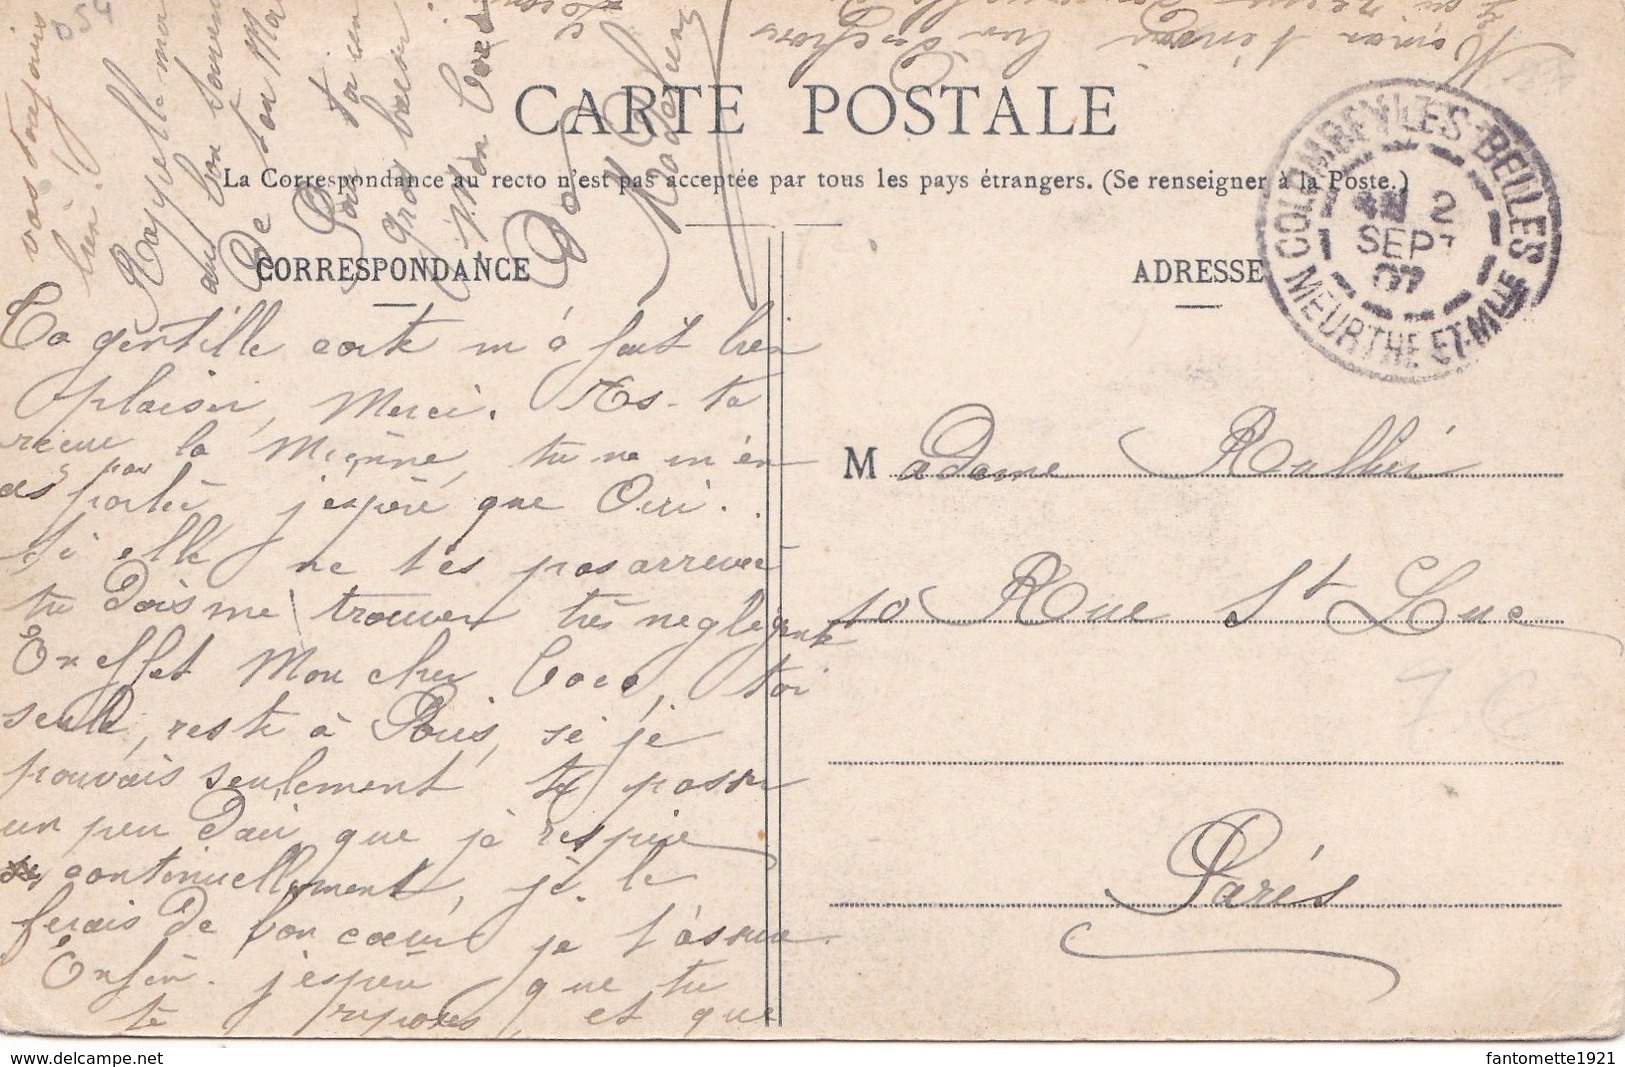 CARTE POSTALE
La Correspondance au recto n'est pas acceptée par tous les pays étrangers. (Se renseigner à la Poste.)
CORRESPONDANCE
ADRESSE
COLOMBEY-LES-BELLES
2
SEPT
07
MEURTHE-ET-MLLE
Ta gentille carte m'a fait bien
plaisir, Merci. As-tu
reçue la Mienne, tu ne m'en
as pas parlé j'espère que Oui.
Si elle ne t'es pas arrivée
tu dois me trouver très negligente
En effet Mon cher Coco, toi
seule, reste à Paris, si je
pouvais seulement te passer
un peu d'air que je respire
continuellement, je le
ferais de bon cœur je t'assure.
Enfin j'espère que tu
te reposes, et que
vas toujours
bien.
Rappelle moi
au bon souvenir
De ton
gros baiser
Mon Coco
Madame Rallier
10 Rue St Luc
Paris
Maman t'envoi
delcampe.net
fantomette1921